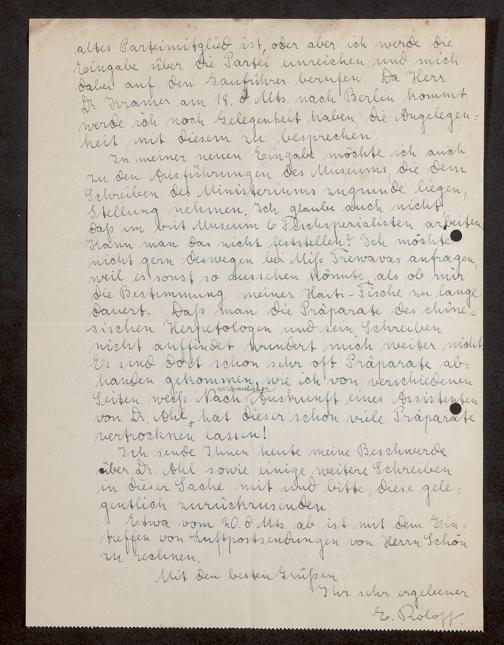 altes Parteimitglied ist, oder aber ich werde die
Eingabe über die Partei einreichen und mich
dabei auf den Gauführer berufen. Da Herr
Dr. Kramer am 18. d. Mts. nach Berlin kommt,
werde ich noch Gelegenheit haben, die Angelegen=
heit mit diesem zu besprechen.
In meiner neuen Eingabe möchte ich auch
zu den Ausführungen des Museums, die dem
Schreiben des Ministeriums zugrunde liegen,
Stellung nehmen. Ich glaube auch nicht,
daß im brit. Museum 6 Fischspezialisten arbeiten.
Kann man das nicht feststellen? Ich möchte
nicht gern deswegen bei Miß Trewavas anfragen,
weil es sonst so aussehen könnte, als ob mir
die Bestimmung meiner Haiti-Fische zu lange
dauert. Daß man die Präparate des chine=
sischen Herpetologen und sein Schreiben
nicht auffindet wundert mich weiter nicht.
Es sind dort schon sehr oft Präparate ab=
handen gekommen, wie ich von verschiedenen
Seiten weiß. Nach Auskunft eines Assistenten
von Dr. Ahl, hat dieser schon viele Präparate
vertrocknen lassen!
Ich sende Ihnen heute meine Beschwerde
über Dr. Ahl sowie einige weitere Schreiben
in dieser Sache mit und bitte, diese gele=
gentlich zurückzusenden.
Etwa vom 20. d. Mts. ab ist mit dem Ein=
treffen von Luftpostsendungen von Herrn Schön
zu rechnen.
Mit den besten Grüßen
Ihr sehr ergebener
E. Roloff.